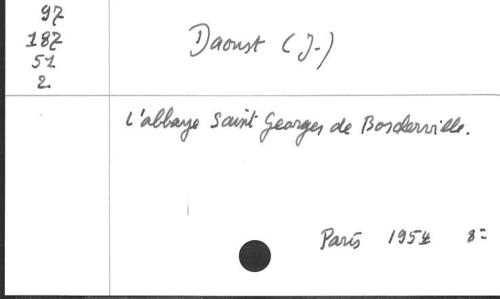 97
187
51
2
Daoust (J.)
L'abbaye Saint Georges de Bosderville.
Paris 1954 8=